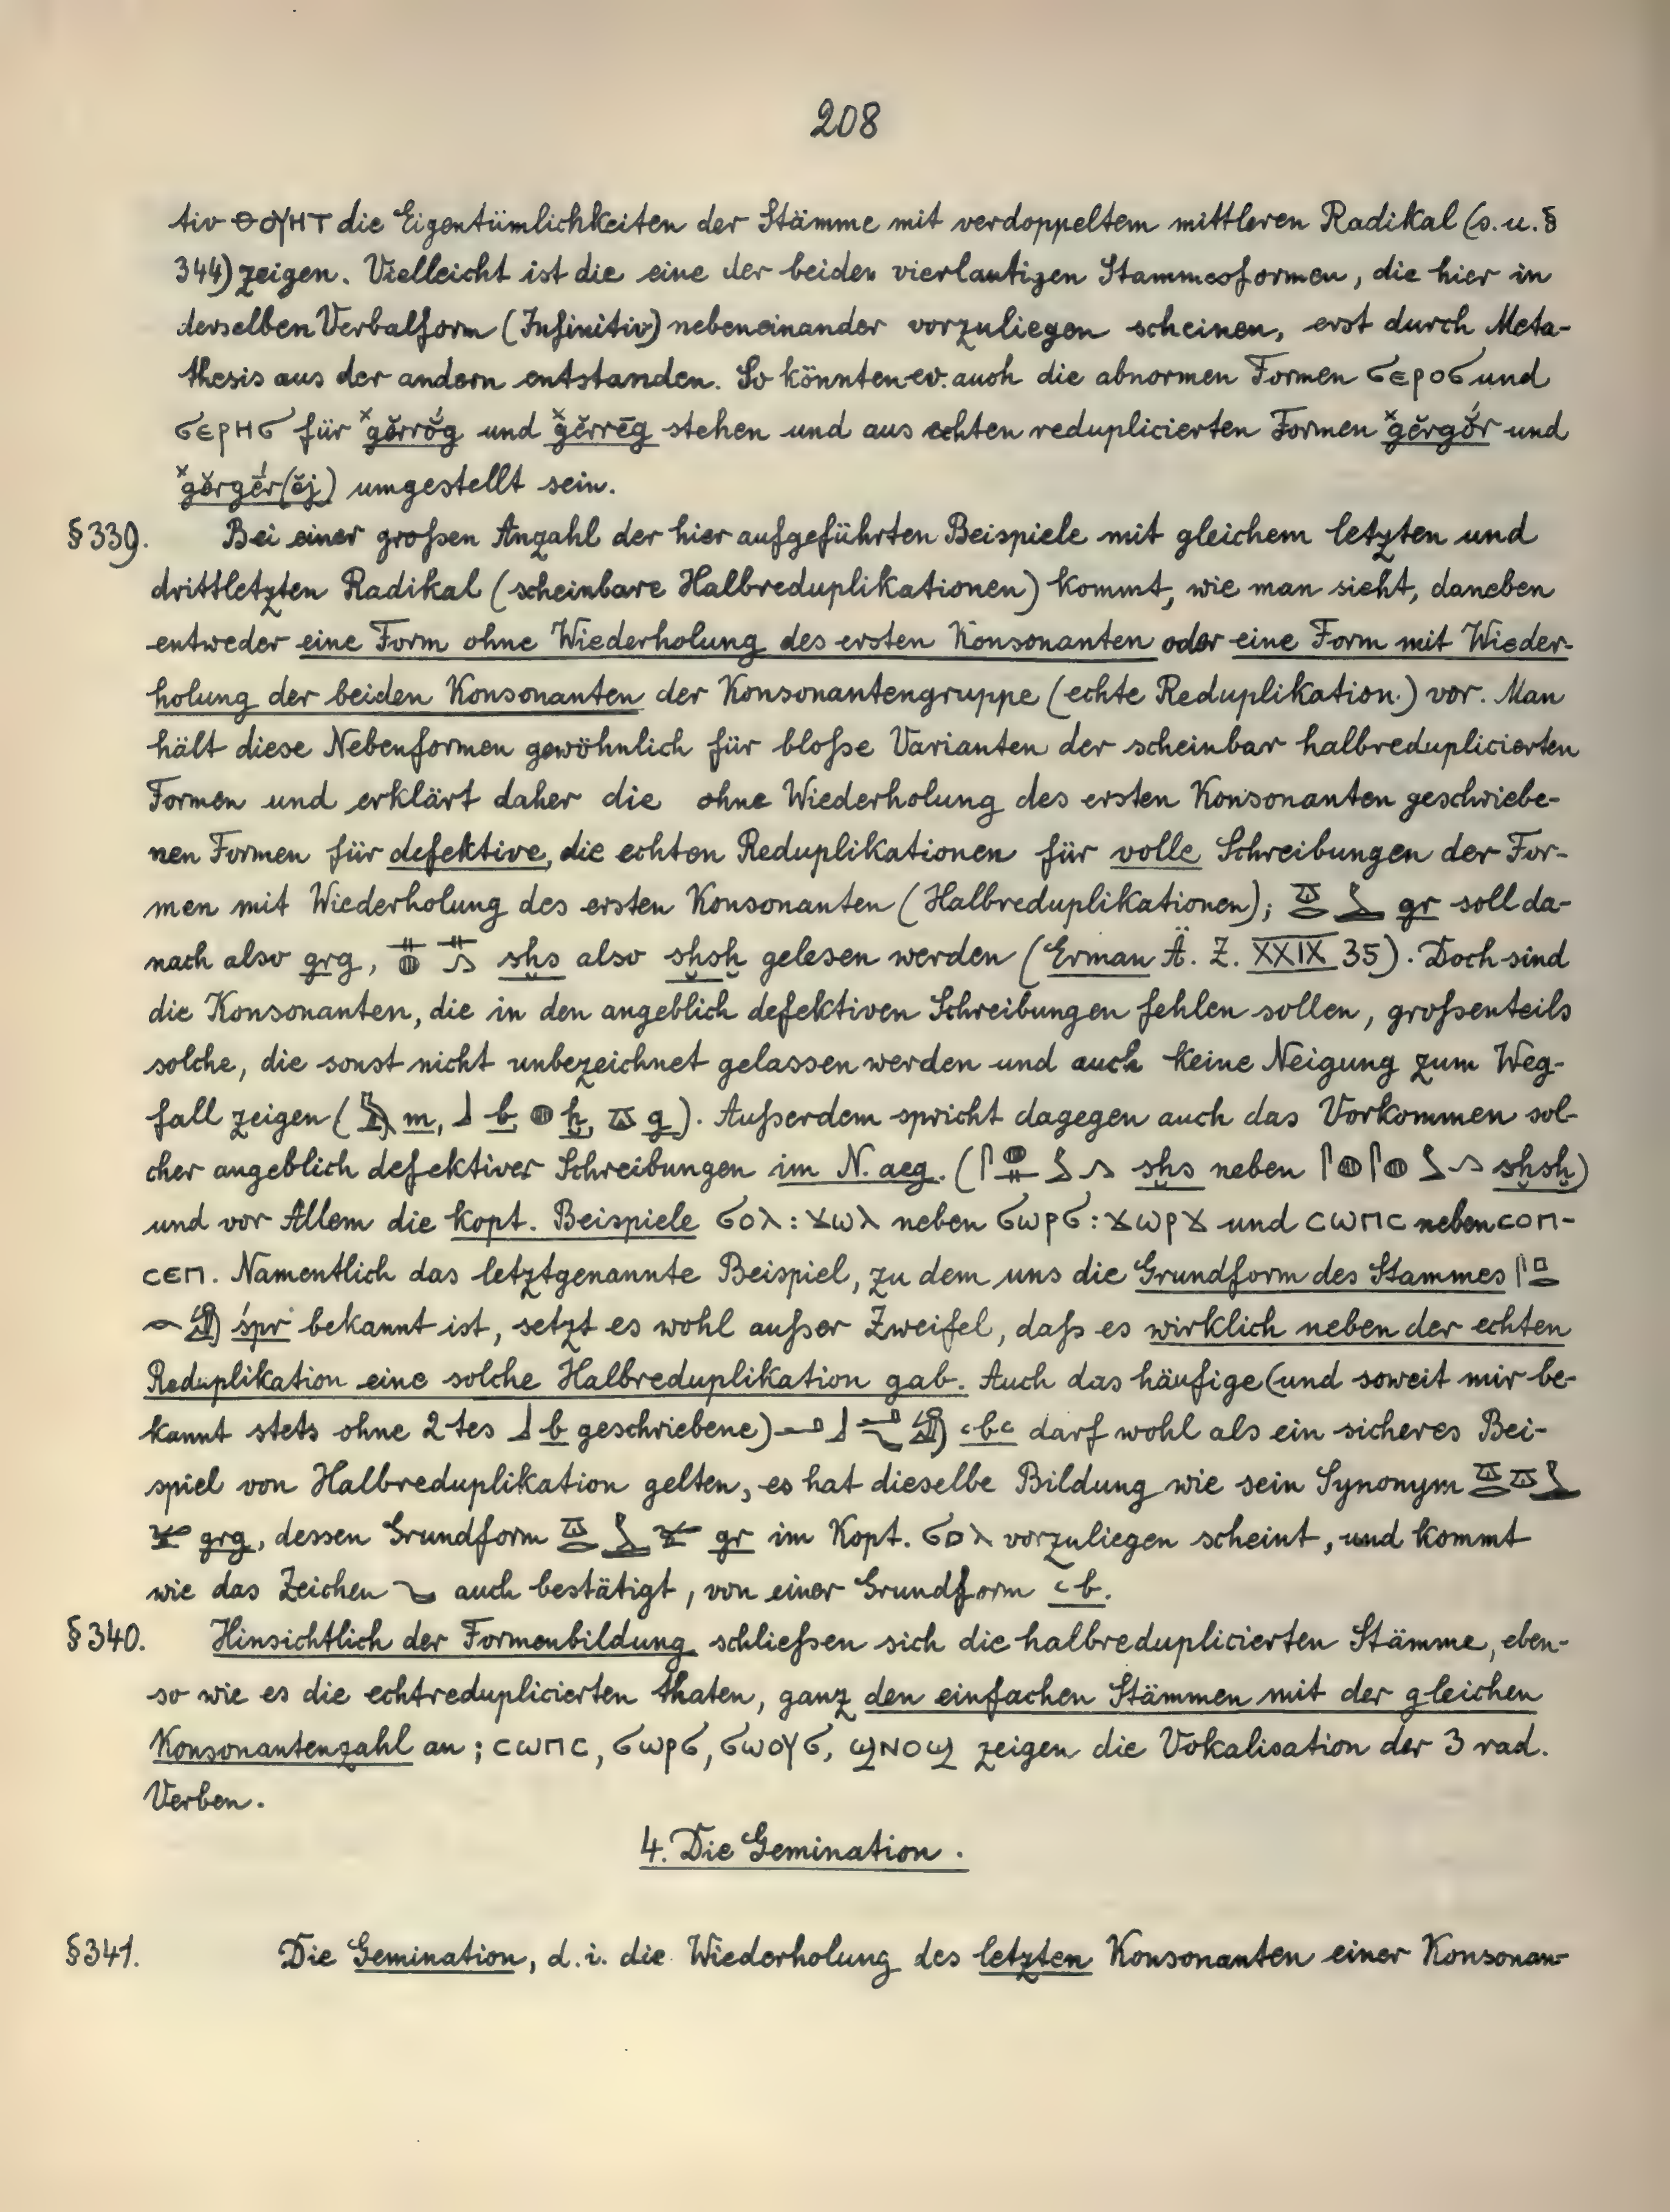 208
tiv ⲑⲟⲩⲏⲧ die Eigentümlichkeiten der Stämme mit verdoppeltem mittleren Radikal (s. u. §
344) zeigen. Vielleicht ist die eine der beiden vierlautigen Stammesformen, die hier in
derselben Verbalform (Infinitiv) nebeneinander vorzuliegen scheinen, erst durch Meta-
thesis aus der andern entstanden. So könnten ev. auch die abnormen Formen ϭⲉⲣⲟϭ und
ϭⲉⲣⲏϭ für ˣgĕrrŏ́g und ˣgĕrrēg stehen und aus echten reduplicierten Formen ˣgĕrgŏ́r und
ˣgĕrgḗr(ĕj) umgestellt sein.
§ 339. Bei einer großen Anzahl der hier aufgeführten Beispiele mit gleichem letzten und
drittletzten Radikal (scheinbare Halbreduplikationen) kommt, wie man sieht, daneben
entweder eine Form ohne Wiederholung des ersten Konsonanten oder eine Form mit Wieder-
holung der beiden Konsonanten der Konsonantengruppe (echte Reduplikation) vor. Man
hält diese Nebenformen gewöhnlich für bloße Varianten der scheinbar halbreduplicierten
Formen und erklärt daher die ohne Wiederholung des ersten Konsonanten geschriebe-
nen Formen für defektive, die echten Reduplikationen für volle Schreibungen der For-
men mit Wiederholung des ersten Konsonanten (Halbreduplikationen); gr soll da-
nach also grg, sḫs also sḫsḫ gelesen werden (Erman Ä. Z. XXIX 35). Doch sind
die Konsonanten, die in den angeblich defektiven Schreibungen fehlen sollen, großenteils
solche, die sonst nicht unbezeichnet gelassen werden und auch keine Neigung zum Weg-
fall zeigen (𓅓 m, 𓃀 b, 𓐍 ḫ, 𓎼 g). Außerdem spricht dagegen auch das Vorkommen sol-
cher angeblich defektiver Schreibungen im N. aeg. (sḫs neben sḫsḫ)
und vor Allem die kopt. Beispiele ϭⲟⲗ : ϫⲱⲗ neben ϭⲱⲣϭ : ϫⲱⲣϫ und ⲥⲱⲡⲥ neben ⲥⲟⲡ-
ⲥⲉⲡ. Namentlich das letztgenannte Beispiel, zu dem uns die Grundform des Stammes 𓋴𓊪
𓂋𓀁 śpr bekannt ist, setzt es wohl außer Zweifel, daß es wirklich neben der echten
Reduplikation eine solche Halbreduplikation gab. Auch das häufige (und soweit mir be-
kannt stets ohne 2tes 𓃀 b geschriebene) ꜥbꜥ darf wohl als ein sicheres Bei-
spiel von Halbreduplikation gelten, es hat dieselbe Bildung wie sein Synonym
grg, dessen Grundform gr im Kopt. ϭⲟⲗ vorzuliegen scheint, und kommt
wie das Zeichen auch bestätigt, von einer Grundform ꜥb.
§ 340. Hinsichtlich der Formenbildung schließen sich die halbreduplicierten Stämme, eben-
so wie es die echtreduplicierten thaten, ganz den einfachen Stämmen mit der gleichen
Konsonantenzahl an; ⲥⲱⲡⲥ, ϭⲱⲣϭ, ϭⲱⲟⲩϭ, ϣⲛⲟϣ zeigen die Vokalisation der 3 rad.
Verben.
4. Die Gemination.
§ 341. Die Gemination, d. i. die Wiederholung des letzten Konsonanten einer Konsonan-